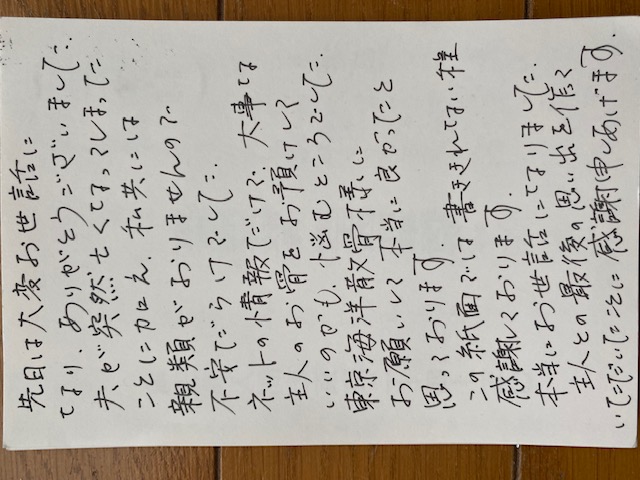 先日は大変お世話に
なり、ありがとうございました。
夫が突然亡くなってしまった
ことに加え、私共には
親類がおりませんので
不安だらけでした。
ネットの情報だけで、大事な
主人のお骨をお預けして
いいのかも、悩むところでした。
東京海洋散骨様に
お願いして本当に良かったと
思っております。
この紙面では書ききれない程
感謝しております。
本当にお世話になりました。
主人との最後の思い出を作って
いただいたことに感謝申しあげます。